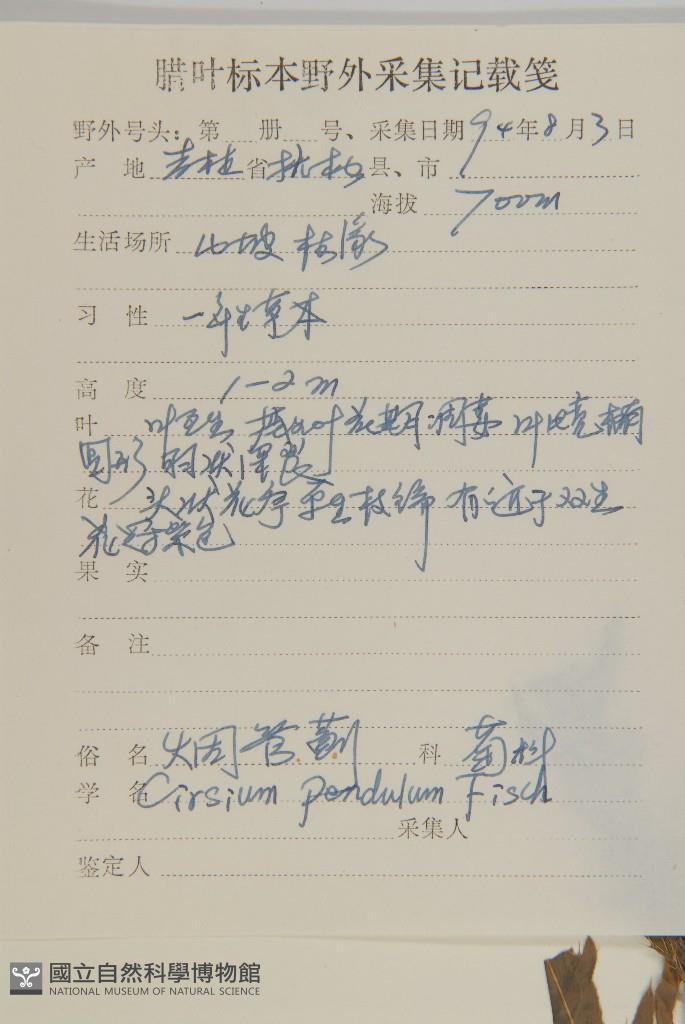 腊叶标本野外采集记载笺
野外号头: 第 册 号、采集日期94年8月3日
产 地 吉林省抚松县、市
海拔 700m
生活场所 山坡 林缘
习 性 一年生草本
高 度 1-2m
叶 叶互生 基生叶花期凋萎 叶 宽椭
圆形 羽状深裂
花 头状花序 单生枝端 有近于双生
花冠紫色
果 实
备 注
俗 名 烟管蓟 科 菊科
学 名 Cirsium pendulum Fisch
采集人
鉴定人
國立自然科學博物館
NATIONAL MUSEUM OF NATURAL SCIENCE